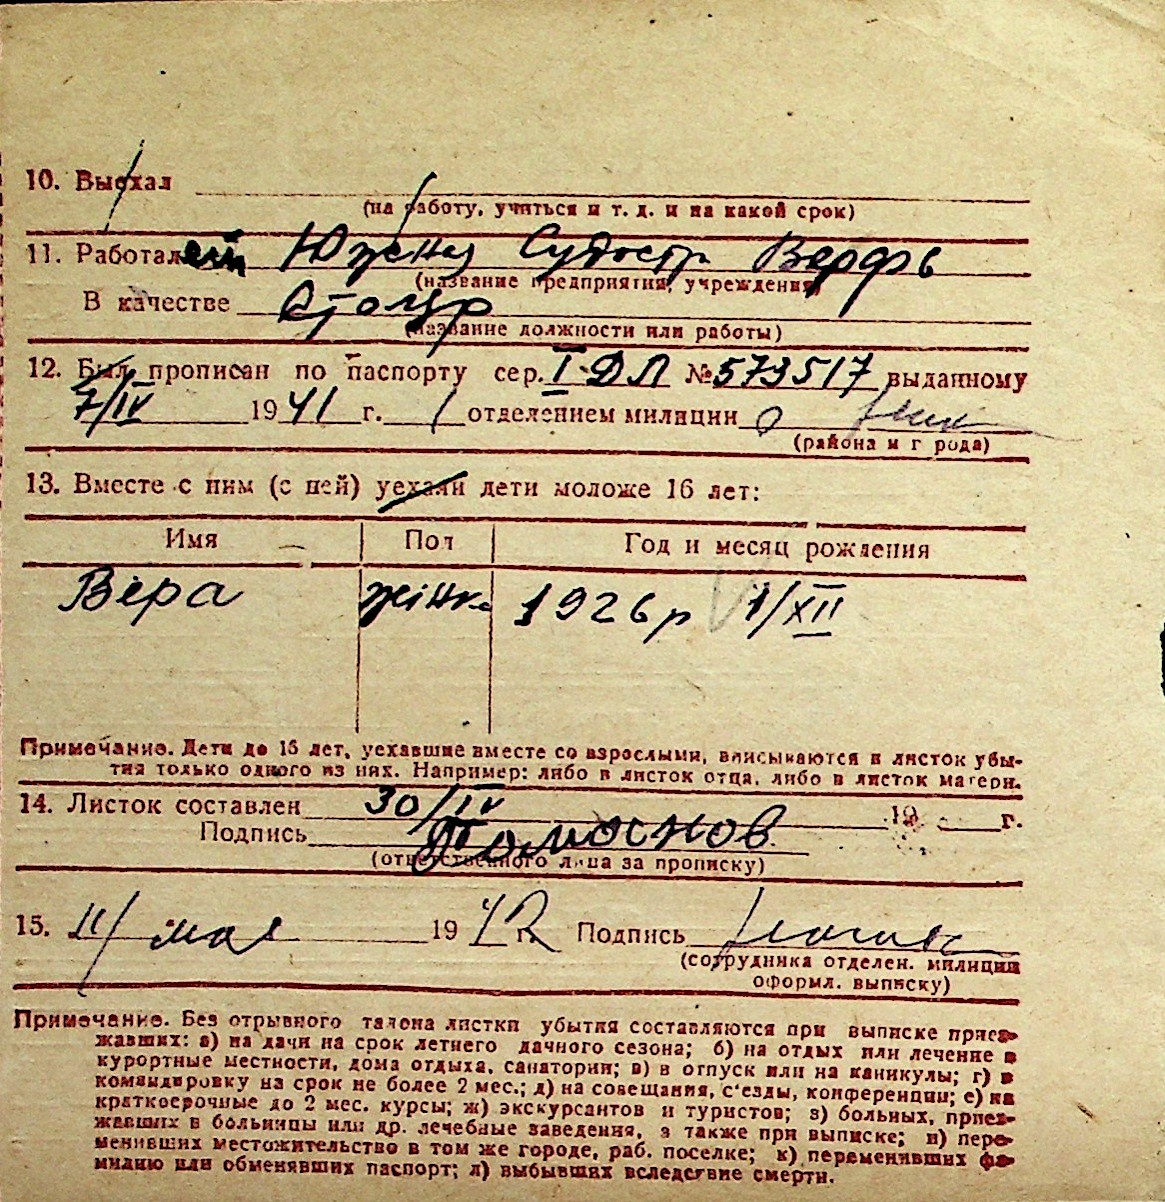 10. Выехал
(на работу, учиться и т. д. и на какой срок)
11. Работал Южену Судостр Верфь
(название предприятия, учреждения)
В качестве Столяр
(название должности или работы)
12. Был прописан по паспорту сер. I ДЛ № 573517 выданному
7/IV 1941 г. 1 отделением милиции
(района и г рода)
13. Вместе с ним (с ней) уехали дети моложе 16 лет:
Имя Пол Год и месяц рождения
Вера жінк. 1926 р 1/XII
Примечание. Дети до 16 лет, уехавшие вместе со взрослыми, вписываются в листок убы-
тия только одного из них. Например: либо в листок отца, либо в листок матери.
14. Листок составлен 30/IV 19 г.
Подпись
(ответственного лица за прописку)
15. 11/ мая 1942 г. Подпись
(сотрудника отделен. милиции
оформл. выписку)
Примечание. Без отрывного талона листки убытия составляются при выписке приез-
жавших: а) на дачи на срок летнего дачного сезона; б) на отдых или лечение в
курортные местности, дома отдыха, санатории; в) в отпуск или на каникулы; г) в
командировку на срок не более 2 мес.; д) на совещания, с'езды, конференции; е) на
краткосрочные до 2 мес. курсы; ж) экскурсантов и туристов; з) больных, приез-
жавших в больницы или др. лечебные заведения, а также при выписке; и) пере-
менивших местожительство в том же городе, раб. поселке; к) переменивших фа-
милию или обменявших паспорт; л) выбывших вследствие смерти.